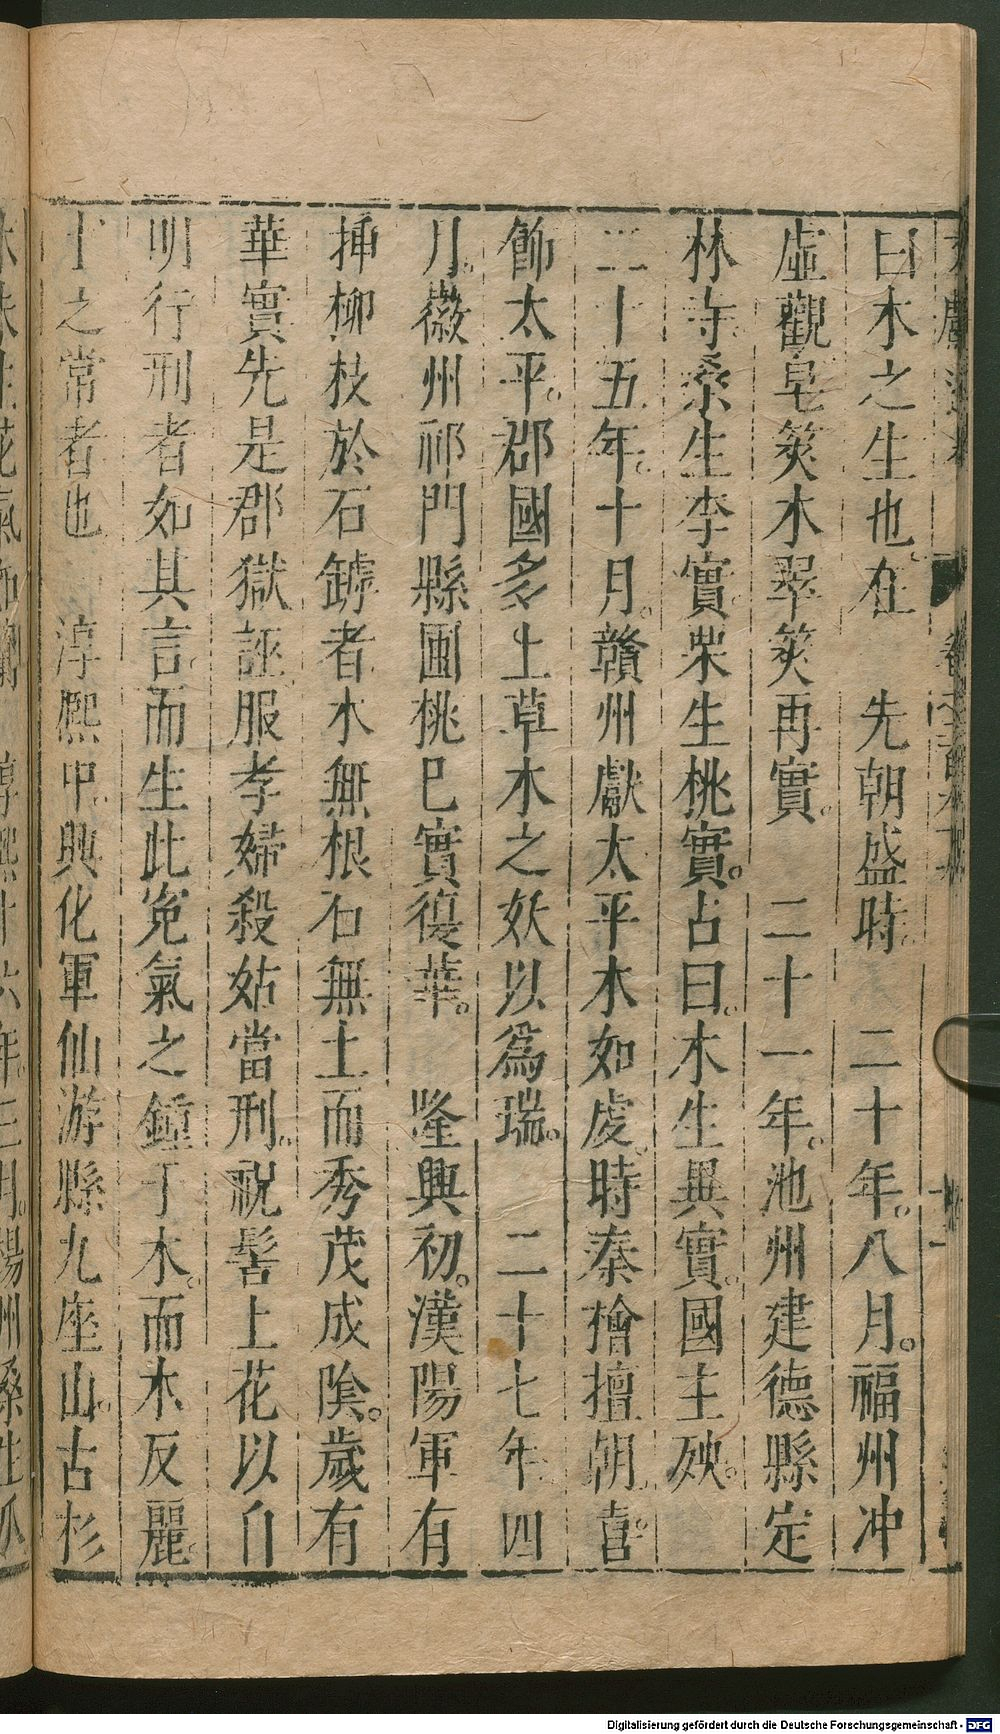 曰木之生也在　先朝盛時。　二十年。八月。福州冲
虛觀皂莢木翠莢再實。　二十一年。池州建德縣定
林寺。桑生李實。栗生桃實。占曰。木生異實。國主殃。
二十五年。十月。贛州獻太平木如處。時秦檜擅朝。喜
飾太平。郡國多上草木之妖以為瑞。　二十七年四
月。徽州祁門縣圃桃已實復華。　隆興初。漢陽軍有
揷柳枝於石罅者木無根石無土而秀茂成陰。歲有
華實先是郡獄誣服孝婦殺姑當刑。祝髻上花以自
明行刑者如其言。而生此寃氣之鍾于木。而木反麗
十之常者也　淳熙中。興化軍仙游縣九座山。古杉
Digitalisierung gefördert durch die Deutsche Forschungsgemeinschaft - DFG